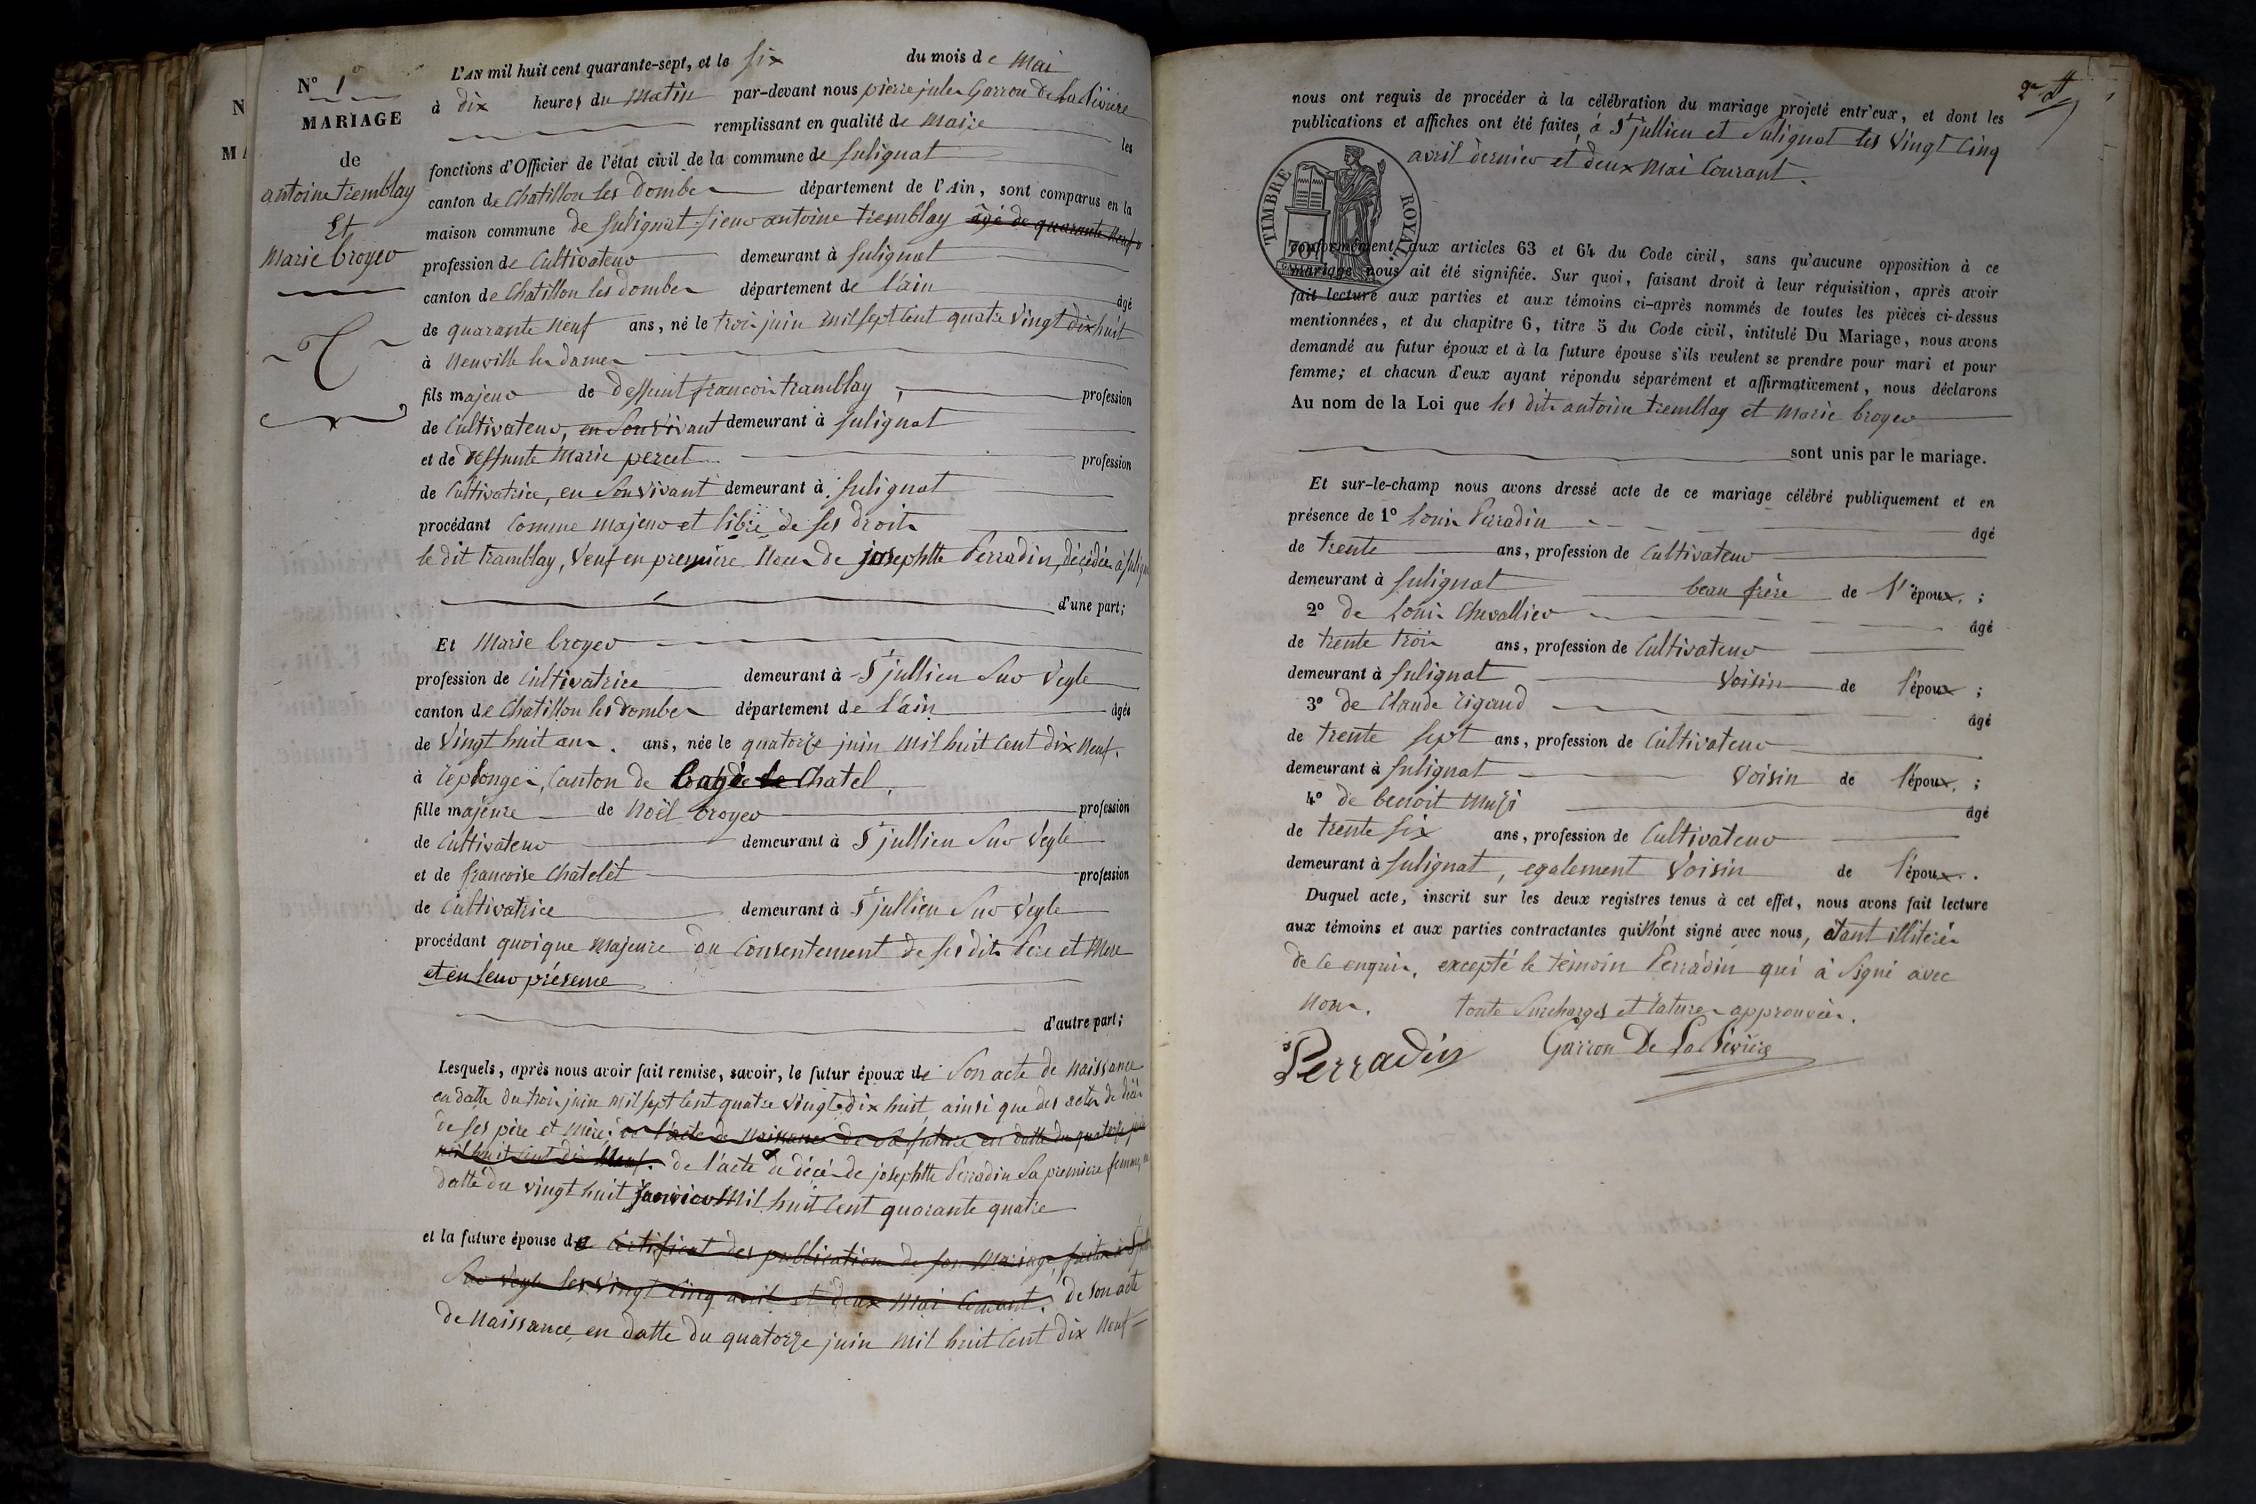 N° 1°
MARIAGE
de
antoine tremblay
Et
Marie broyer
L'AN mil huit cent quarante-sept, et le six du mois de Mai
à dix heures du Matin par-devant nous pierre jules Garron de la Bévière
remplissant en qualité de Maire les
fonctions d'Officier de l'état civil de la commune de Sulignat
canton de Chatillon les dombes département de l'Ain, sont comparus en la
maison commune de Sulignat sieur antoine tremblay âgé de quarante neuf
profession de Cultivateur demeurant à Sulignat
canton de Chatillon les dombes département de l'ain âgé
de quarante neuf ans, né le trois juin mil sept cent quatre vingt dix huit
à Neuville les dames
fils majeur de deffunt francois tramblay, profession
de Cultivateur, en son vivant demeurant à Sulignat
et de deffunte Marie percet profession
de Cultivatrice, en son vivant demeurant à Sulignat
procédant comme majeur et libre de ses droits
le dit tramblay, Veuf en première Noces de josephtte Perradin, décédée à
d'une part;
Et Marie broyer
profession de Cultivatrice demeurant à St jullien Sur Veyle
canton de Chatillon les dombes département de l'ain âgée
de Vingt huit ans. ans, née le quatorze juin Mil huit Cent dix Neuf.
à Replonges, Canton de bagé le Chatel,
fille majeure de Noël broyer profession
de Cultivateur demeurant à St jullien Sur Veyle
et de francoise Chatelet profession
de Cultivatrice demeurant à St jullien Sur Veyle
procédant quoique Majeure du Consentement de ses dits Père et Mère
et en leur présence
d'autre part;
Lesquels, après nous avoir fait remise, savoir, le futur époux de Son acte de Naissance
en datte du trois juin mil sept cent quatre vingt dix huit ainsi que des actes de décès
de ses père et mère; de l'acte de Naissance de la future en datte du quatorze juin
mil huit cent dix Neuf. de l'acte de décé de josephtte Perradin Sa première femme, en
datté du vingt huit janvier Mil huit Cent quarante quatre
et la future épouse de Certificat des publication de son Mariage, faites à St
Sur Veyle les Vingt Cinq avril et deux Mai Courant. de son acte
de Naissance, en datte du quatorze juin Mil huit Cent dix Neuf
nous ont requis de procéder à la célébration du mariage projeté entr'eux, et dont les
publications et affiches ont été faites à St jullien et Sulignat les Vingt Cinq
avril dernier et deux Mai Courant.
TIMBRE ROYAL
conformément aux articles 63 et 64 du Code civil, sans qu'aucune opposition à ce
mariage nous ait été signifiée. Sur quoi, faisant droit à leur réquisition, après avoir
fait lecture aux parties et aux témoins ci-après nommés de toutes les pièces ci-dessus
mentionnées, et du chapitre 6, titre 5 du Code civil, intitulé Du Mariage, nous avons
demandé au futur époux et à la future épouse s'ils veulent se prendre pour mari et pour
femme; et chacun d'eux ayant répondu séparément et affirmativement, nous déclarons
Au nom de la Loi que les dits antoine tremblay et Marie broyer
sont unis par le mariage.
Et sur-le-champ nous avons dressé acte de ce mariage célébré publiquement et en
présence de 1° Louis Perradin âgé
de trente ans, profession de Cultivateur
demeurant à Sulignat beau frère de l'époux;
2° de Louis Chevallier âgé
de trente trois ans, profession de Cultivateur
demeurant à Sulignat Voisin de l'époux;
3° de Claude rigaud âgé
de trente sept ans, profession de Cultivateur
demeurant à Sulignat Voisin de l'époux;
4° de benoit âgé
de trente six ans, profession de Cultivateur
demeurant à Sulignat, egalement Voisin de l'époux.
Duquel acte, inscrit sur les deux registres tenus à cet effet, nous avons fait lecture
aux témoins et aux parties contractantes qui n'ont signé avec nous, étant illiterés
de ce enquis, excepté le témoin Perradin qui à Signé avec
Nous. toute Surcharges et ratures approuvées.
Perradin Garron De La Bévière